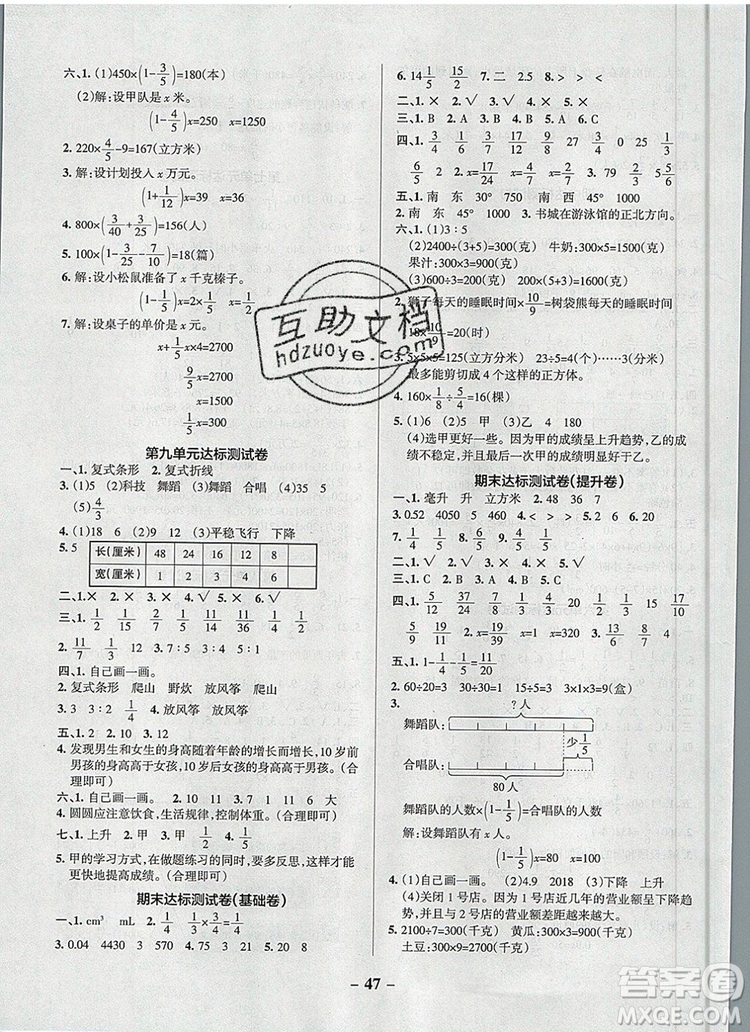 六、1. (1)450×(1-3/5)=180(本)
(2)解:设甲队是 x 米。
(1-4/5)x=250 x=1250
2. 220×4/5-9=167(立方米)
3. 解:设计划投入 x 万元。
(1+1/12)x=39 x=36
4. 800×(3/40+3/25)=156(人)
5. 100×(1-3/25-7/10)=18(篇)
6. 解:设小松鼠准备了 x 千克榛子。
(1-1/5)x=2 x=5/2
7. 解:设桌子的单价是 x 元。
x+1/5x×4=2700
9/5x=2700
x=1500
1/5x=300
第九单元达标测试卷
一、1. 复式条形 2. 复式折线
3. (1)35 (2)科技 舞蹈 (3)舞蹈 合唱 (4)35 5
(5)4/3
4. (1)18 6 (2)9 12 (3)平稳飞行 下降
5. 5
长(厘米) 48 24 16 12 8
宽(厘米) 1 2 3 4 6
二、1. × 2. × 3. √ 4. × 5. × 6. √
三、1. 1/2 1/15 1/2 11/15 11/56 1/14
2. 11/7 1/12 3. 12 3 7:5 1:1
四、1. 自己画一画。
2. 复式条形 爬山 野炊 放风筝 爬山
3. 3 3:2 1/4 4. 放风筝 放风筝
五、1. 12 2. 10 3. 12
4. 发现男生和女生的身高随着年龄的增长而增长,10 岁前
男孩的身高高于女孩,10 岁后女孩的身高高于男孩。
(合理即可)
六、1. 自己画一画。 2. 10 3. 11 11 6 大
4. 圆圆应注意饮食,生活规律,控制体重。(合理即可)
七、1. 上升 2. 甲 3. 甲 1/2 4. 1/2
5. 甲的学习方式,在做题练习的同时,要多反思,这样才能
更快地提高成绩。(合理即可)
期末达标测试卷(基础卷)
一、1. cm³ mL 2. 1/4 1/4 3/16
3. 0.04 4430 3 70 4. 45 5. 8
6. 14 1/5 15/2 7. 二 2.5 8. > > <
二、1. × 2. √ 3. √ 4. × 5. ×
三、1. B 2. A 3. A 4. B 5. B
四、1. 3/4 1/4 9/16 4/27 3/4 0 25 1/4
五、1. 南 东 30° 750 南 西 45° 1000
2. 南 东 45° 1000 3. 书城在游泳馆的正北方向。
六、1. (1)3:5
(2)2400÷(3+5)=300(克) 牛奶:300×5=1500(克)
果汁:300×3=900(克)
(3)600÷3=200(克) 200×5=1000(克)
2. 狮子每天的睡眠时间×10/9=树袋熊每天的睡眠时间
18×10/9=20(时)
3. 5×5×5=125(立方分米) 23÷5=4(个)……3(分米)
最多能剪切成 4 个这样的正方体。
4. 160×1/8÷5/4=16(棵)
5. (1)6 (2)5 甲 (3)乙 4 180
(4)选甲更好一些。因为甲的成绩呈上升趋势,乙的成
绩不稳定,并且最后一次甲的成绩明显好于乙。
期末达标测试卷(提升卷)
一、1. 毫升 升 立方米 2. 48 36 7
3. 0.52 4050 5 460 4. < > < >
5. 1/14 4/15 6. 1/8 7/8 7. 5 8. 3 4
二、1. √ 2. × 3. × 4. √ 5. √
三、1. C 2. A 3. B 4. C 5. A
四、1. 5/12 17/24 3/7 2/5 1/20 1/32 15 17/10
2. 5/9 8/9 19/39 3. x=19/39 x=320 x=3/2
五、1. 1-9/20=11/20
2. 60÷20=3 30÷30=1 3×1×3=9(盒)
3.
?人
舞蹈队:
少1/5
合唱队:
80 人
舞蹈队的人数×(1-1/5)=合唱队的人数
解:设舞蹈队有 x 人。
(1-1/5)x=80 x=100
4. (1)自己画一画。 (2)4.9 2018 (3)下降 上升
(4)关闭 1 号店。因为 1 号店近几年的营业额呈下降趋
势,并且与 2 号店的营业额差距越来越大。
5. 2100÷7=300(千克) 黄瓜:300×4=1200(千克)
土豆:300×9=2700(千克)
- 47 -
互助文档
hdzuoye.com
答案圈
MXQE.COM